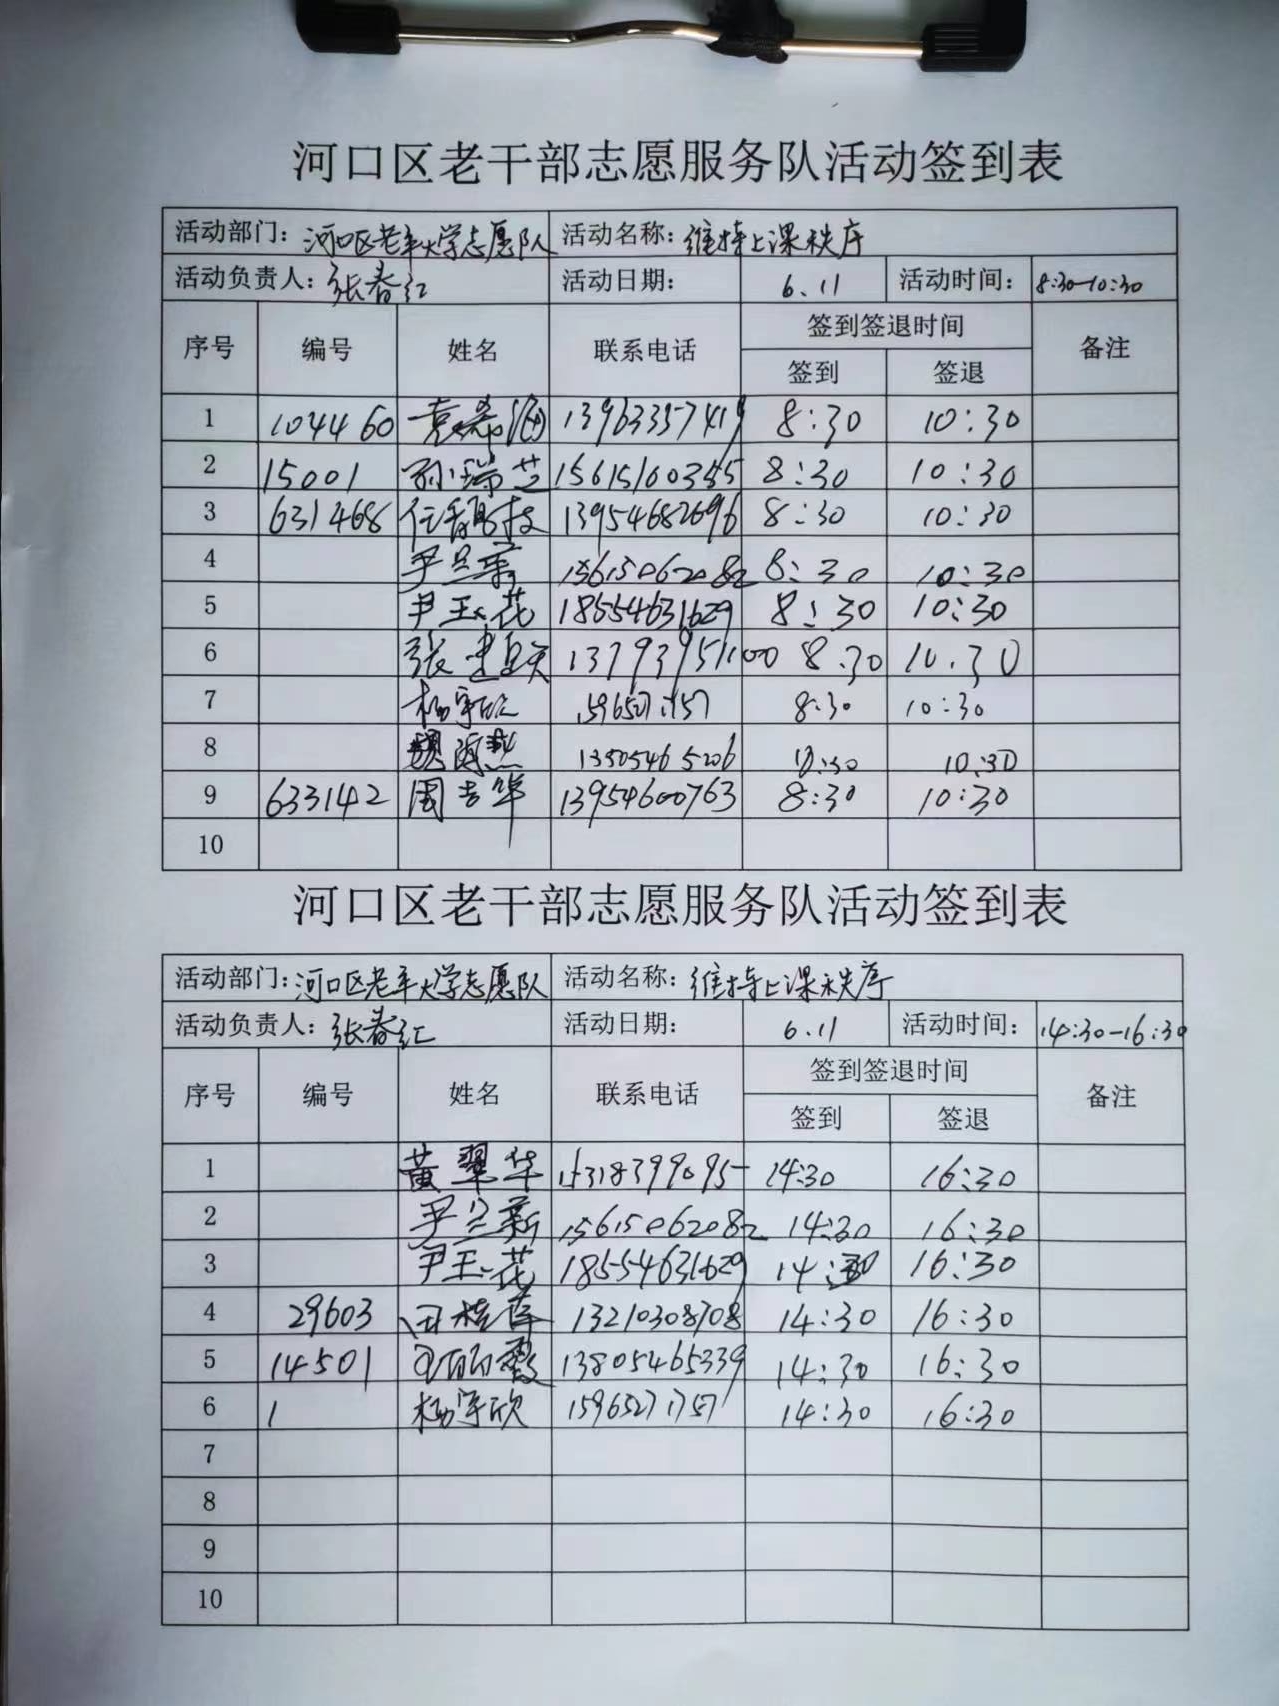 河口区老干部志愿服务队活动签到表
活动部门：河口区老年大学志愿队 活动名称：维持上课秩序
活动负责人：张春红 活动日期： 6.11 活动时间： 8:30-10:30
序号 编号 姓名 联系电话 签到签退时间 备注
签到 签退
1 104460 8:30 10:30
2 15001 孙瑞芝 15615160355 8:30 10:30
3 631468 13954682696 8:30 10:30
4 尹兰新 15615062082 8:30 10:30
5 尹玉花 18554631629 8:30 10:30
6 张 8.30 10.30
7 杨宇欣 8:30 10:30
8 魏海燕 13505465206 10:30 10:30
9 633142 周吉华 13954600763 8:30 10:30
10
河口区老干部志愿服务队活动签到表
活动部门：河口区老年大学志愿队 活动名称：维持上课秩序
活动负责人：张春红 活动日期： 6.11 活动时间： 14:30-16:30
序号 编号 姓名 联系电话 签到签退时间 备注
签到 签退
1 黄翠华 14:30 16:30
2 尹兰新 15615062082 14:30 16:30
3 尹玉花 18554631629 14:30 16:30
4 29603 13210308708 14:30 16:30
5 14501 13805465339 14:30 16:30
6 1 杨宇欣 15965271757 14:30 16:30
7
8
9
10